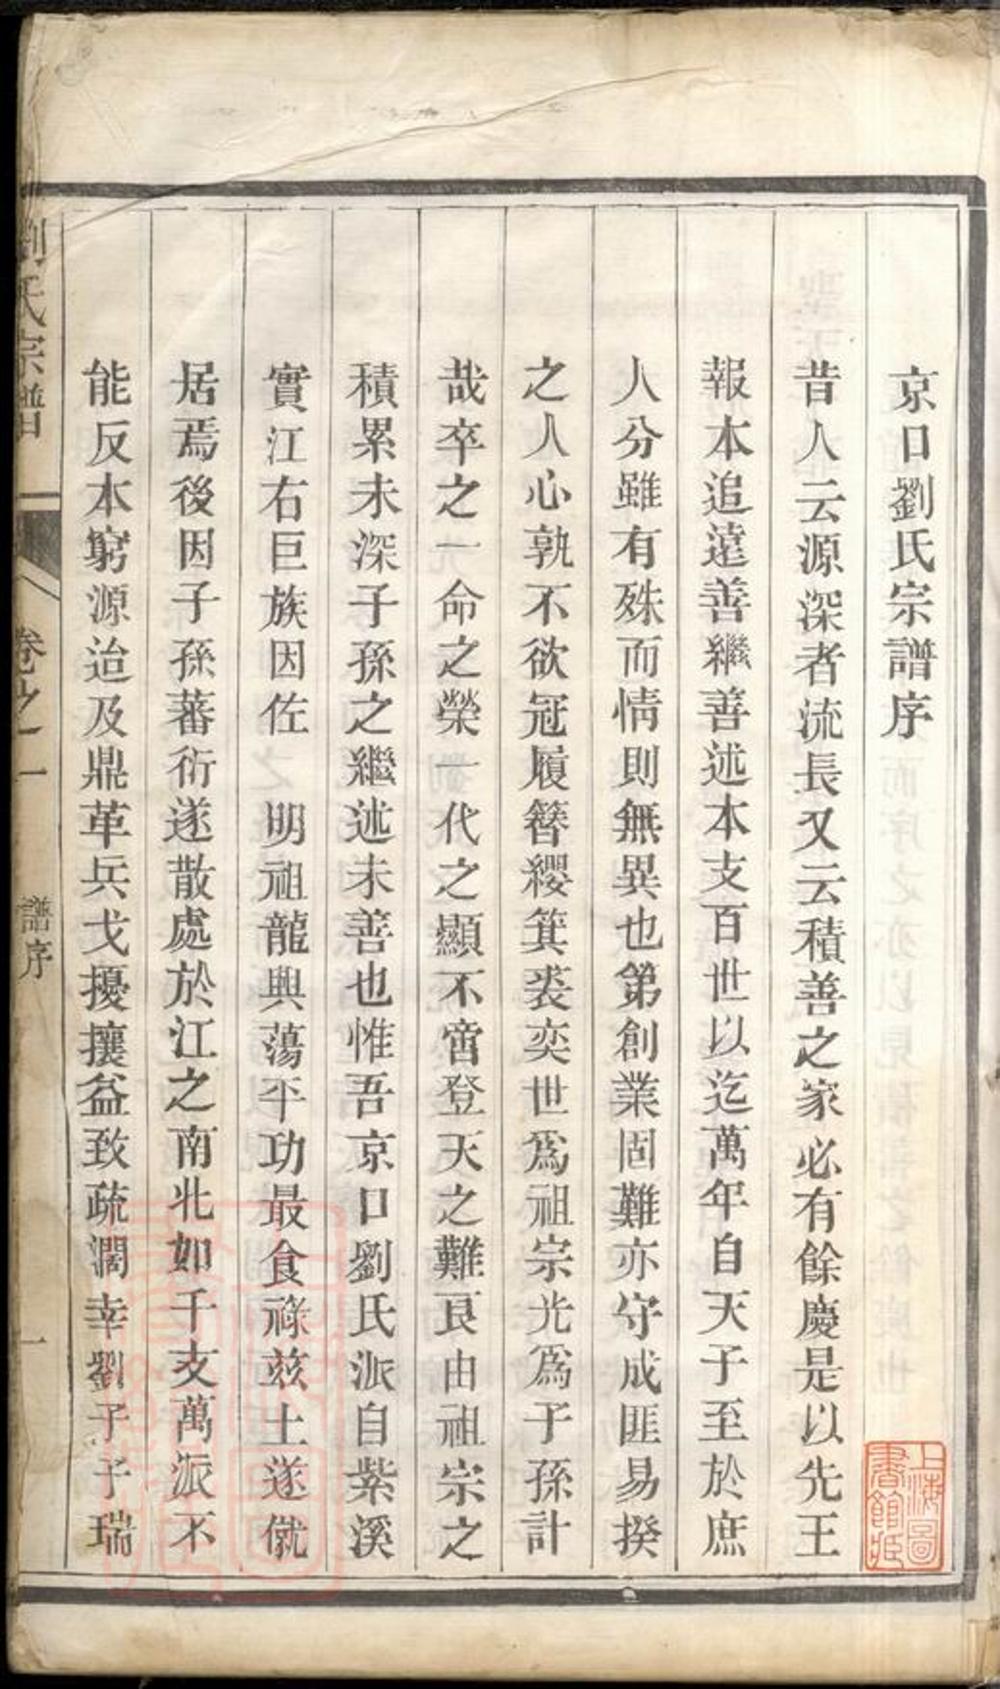 京口劉氏宗譜序
昔人云源深者流長又云積善之家必有餘慶是以先王
報本追遠善繼善述本支百世以迄萬年自天子至於庶
人分雖有殊而情則無異也第創業固難亦守成匪易揆
之人心孰不欲冠履簪纓箕裘奕世爲祖宗光爲子孫計
哉卒之一命之榮一代之顯不啻登天之難良由祖宗之
積累未深子孫之繼述未善也惟吾京口劉氏派自紫溪
實江右巨族因佐 明祖龍興蕩平功最食祿茲土遂僦
居焉後因子孫蕃衍遂散處於江之南北如千支萬派不
能反本窮源迨及鼎革兵戈擾攘益致疏濶幸劉子予瑞
劉氏宗譜 卷之一 譜序 一
上海圖書館藏